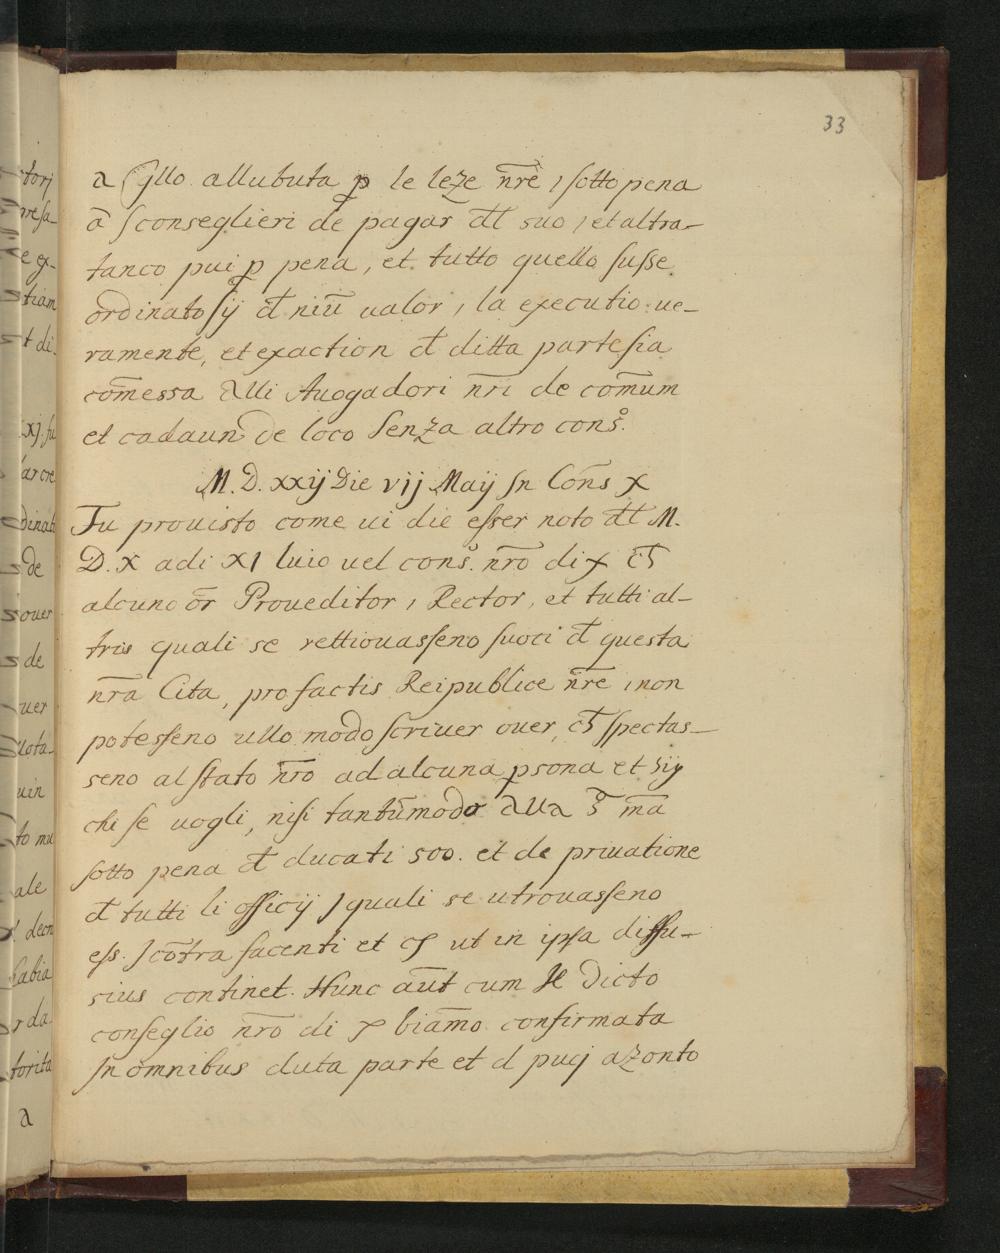 33
a Qllo allubuta p̱ le leze n̄re, sotto pena
ā Sconseglieri de pagar d̄l suo, et altra-
tanco pui p̱ pena, et tutto quello fusse
ordinato sij d̄ niū ualor, la executio ue-
ramente, et exaction d̄ ditta parte sia
com̄essa alli Auogadori n̄ri de com̄um
et cadaun de loco senza altro cons.°
M. D. xxij Die vij Maij In Cons̄ X
Fu prouisto come ui die esser noto d̄l M.
D. X adi XI luio uel cons.° n̄ro di X c̄h
alcuno or̄ Proueditor, Rector, et tutti al-
tris quali se rettiouasseno fuoci d̄ questa
n̄ra Cita, pro factis Reipublice n̄re, non
potesseno ullo modo scriuer ouer, c̄h spectas-
seno al stato n̄ro ad alcuna p̱sona et sij
chi se uogli, nisi tantūmodo alla S.ª m̄a
sotto pena d̄ ducati 500. et de priuatione
d̄ tutti li officij I quali se utrouasseno
ess. I cōtra facenti et ut in ipsa diffu-
sius continet. Hunc aūt cum Il dicto
conseglio n̄ro di X biam̄o confirmata
In omnibus duta parte et d puij azonto
torj
resa-
e ex-
tiam
t di-
xj. fu
ar cre
dinat
de
ouer
de
uer
lota-
uin
to mu
ale
decn
habia
r da
torita
a